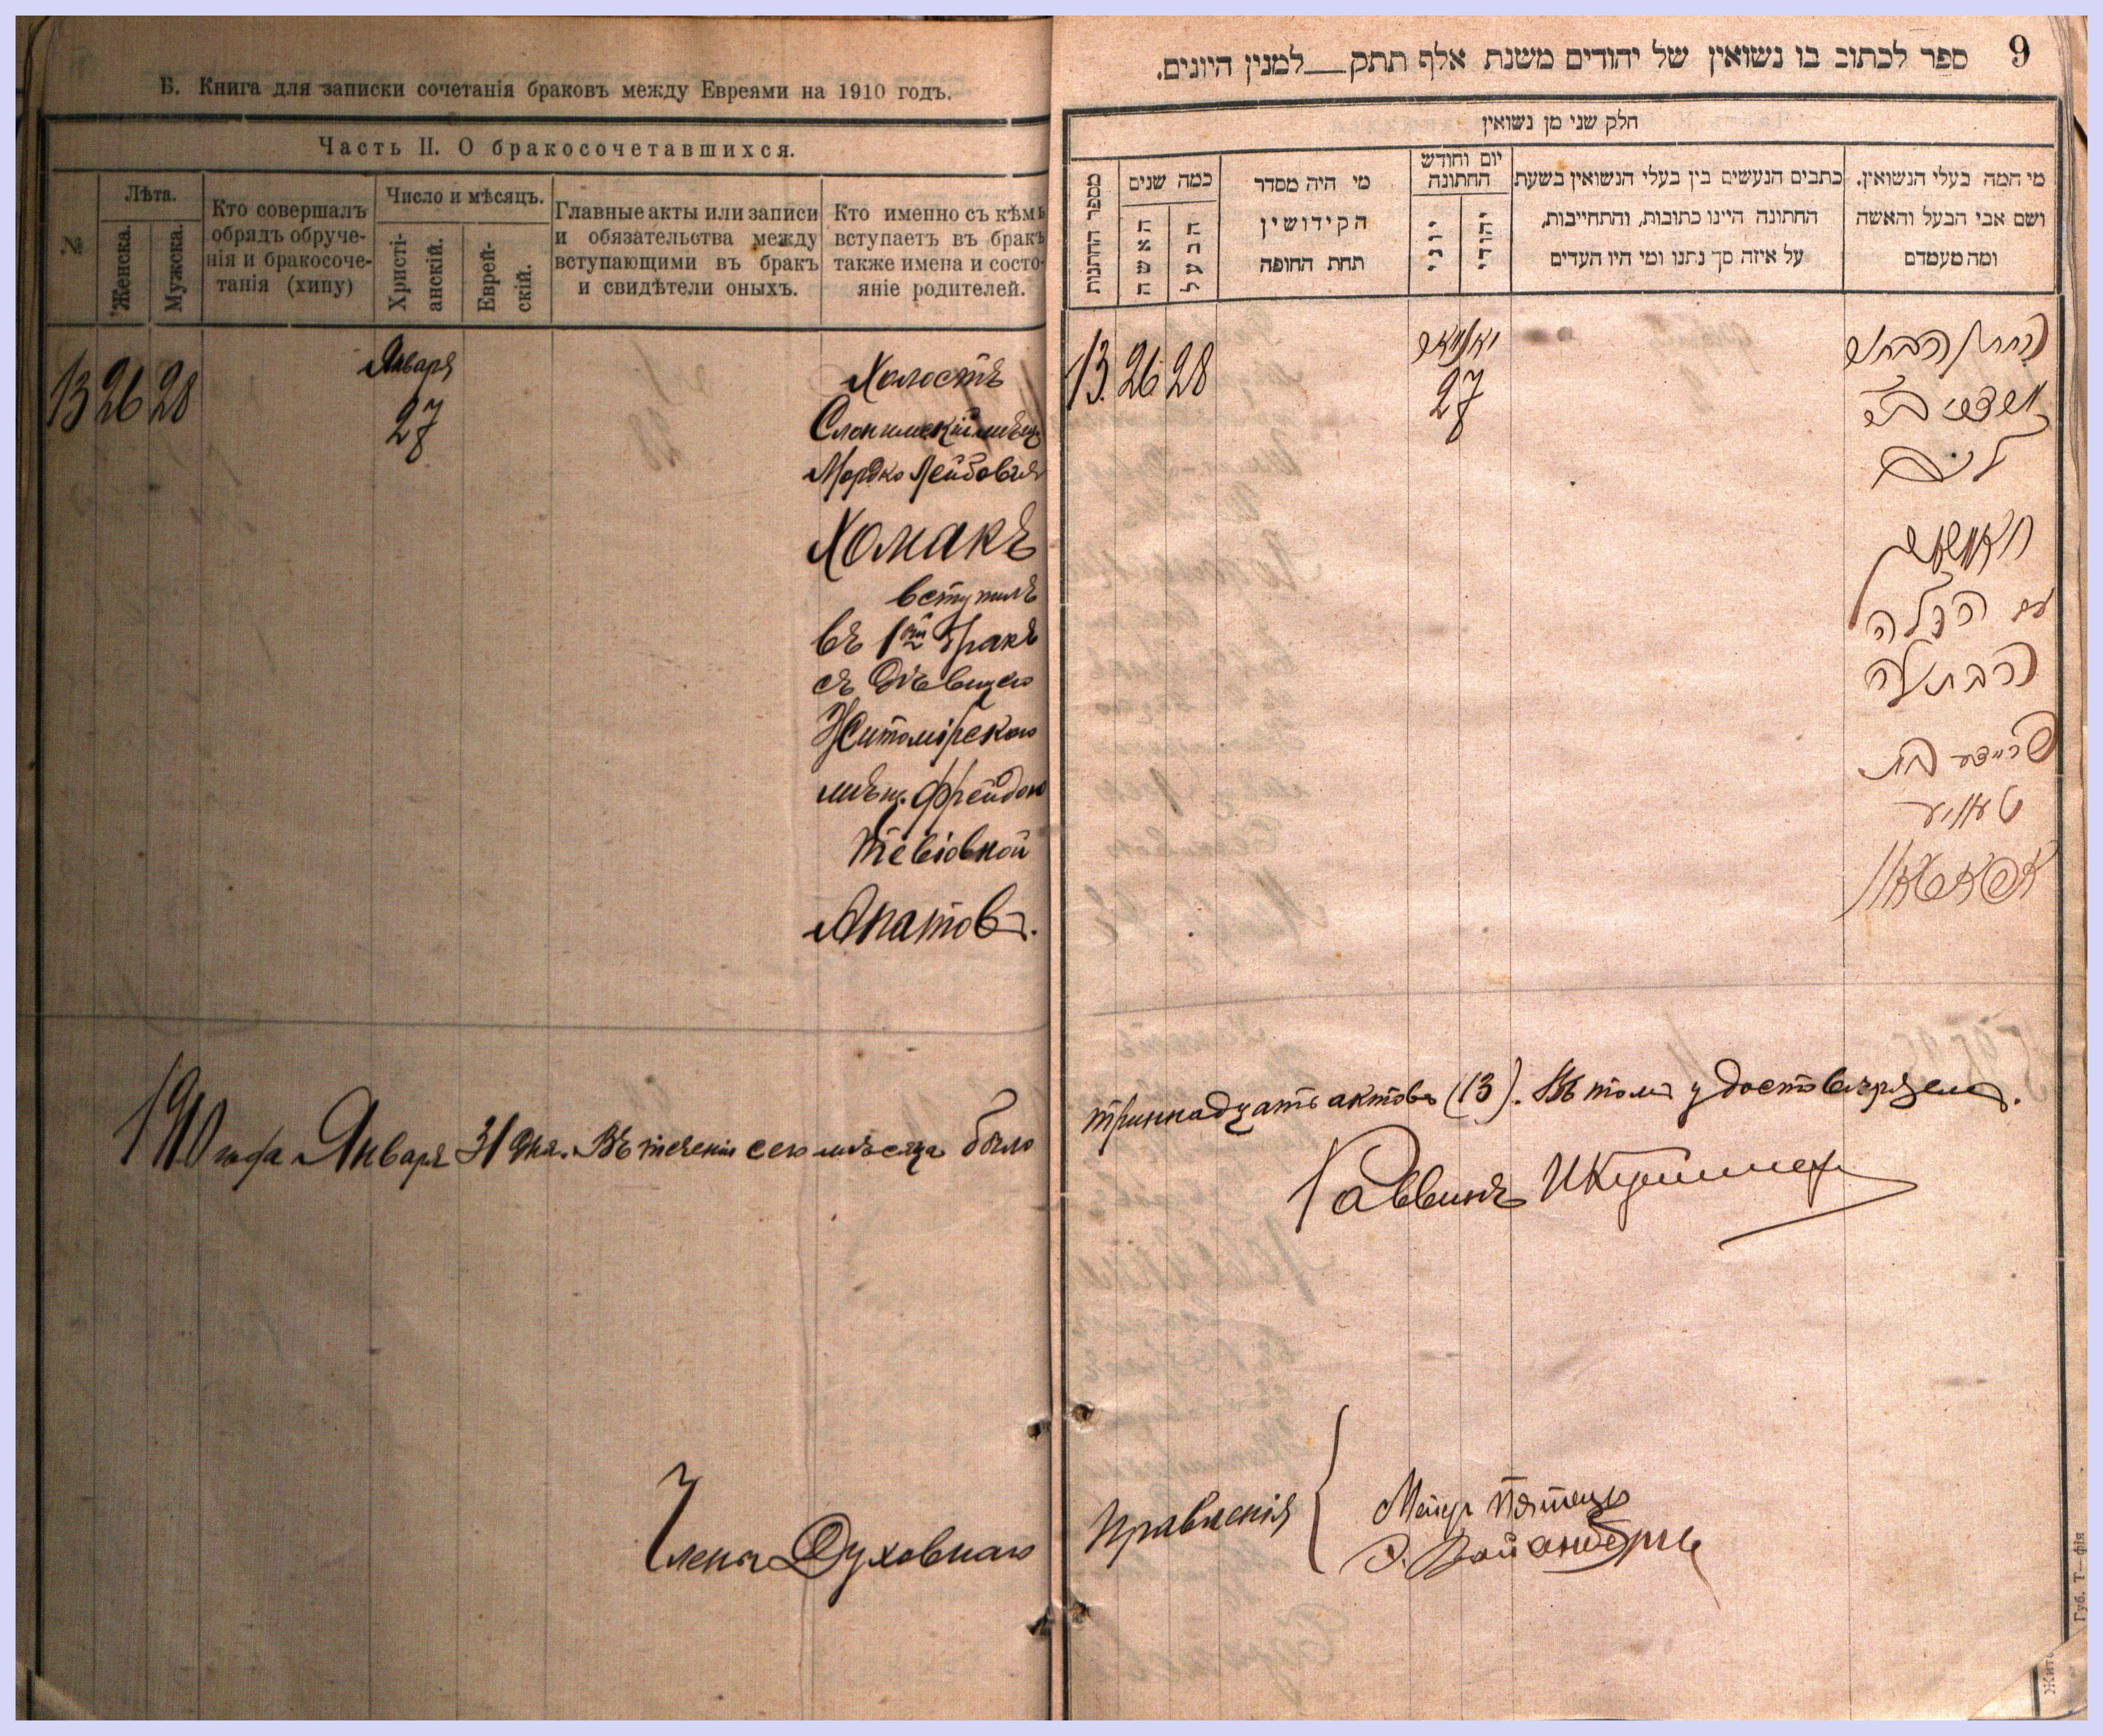 Б. Книга для записки сочетанія браковъ между Евреями на 1910 годъ.
Часть II. О бракосочетавшихся.
№
Лѣта.
Женска.
Мужска.
Кто совершалъ
обрядъ обруче-
нія и бракосоче-
танія (хипу)
Число и мѣсяцъ.
Христі-
анскій.
Еврей-
скій.
Главные акты или записи
и обязательства между
вступающими въ бракъ
и свидѣтели оныхъ.
Кто именно съ кѣмъ
вступаетъ въ бракъ
также имена и состо-
яніе родителей.
13 26 28
Января
27
Холостъ
Слонимскій мѣщ
Мордко Лейбовъ
Хомакъ
вступилъ
въ 1ый бракъ
съ дѣвицею
Житомірскою
мѣщ. Фрейдою
Тевіовной
Апатовъ.
1910 года Января 31 дня. Въ теченіи сего мѣсяца было
Члены Духовнаго
9
ספר לכתוב בו נשואין של יהודים משנת אלף תתק__למנין היונים.
חלק שני מן נשואין
מספר החתונות
כמה שנים
האשה
הבעל
מי היה מסדר
הקידושין
תחת החופה
יום וחודש
החתונה
יוני
יהודי
כתבים הנעשים בין בעלי הנשואין בשעת
החתונה היינו כתובות, והתחייבות,
על איזה סך נתנו ומי היו העדים
מי המה בעלי הנשואין.
ושם אבי הבעל והאשה
ומה מעמדם
13. 26 28
יאנואר
27
החתן הבחור
מרדכי ב״ר
ליב
עם הכלה
הבתולה
פריידע בת
טעוויע
тринадцать актовъ (13). Въ томъ удостовѣряемъ.
Раввинъ
Правленія
Меиръ